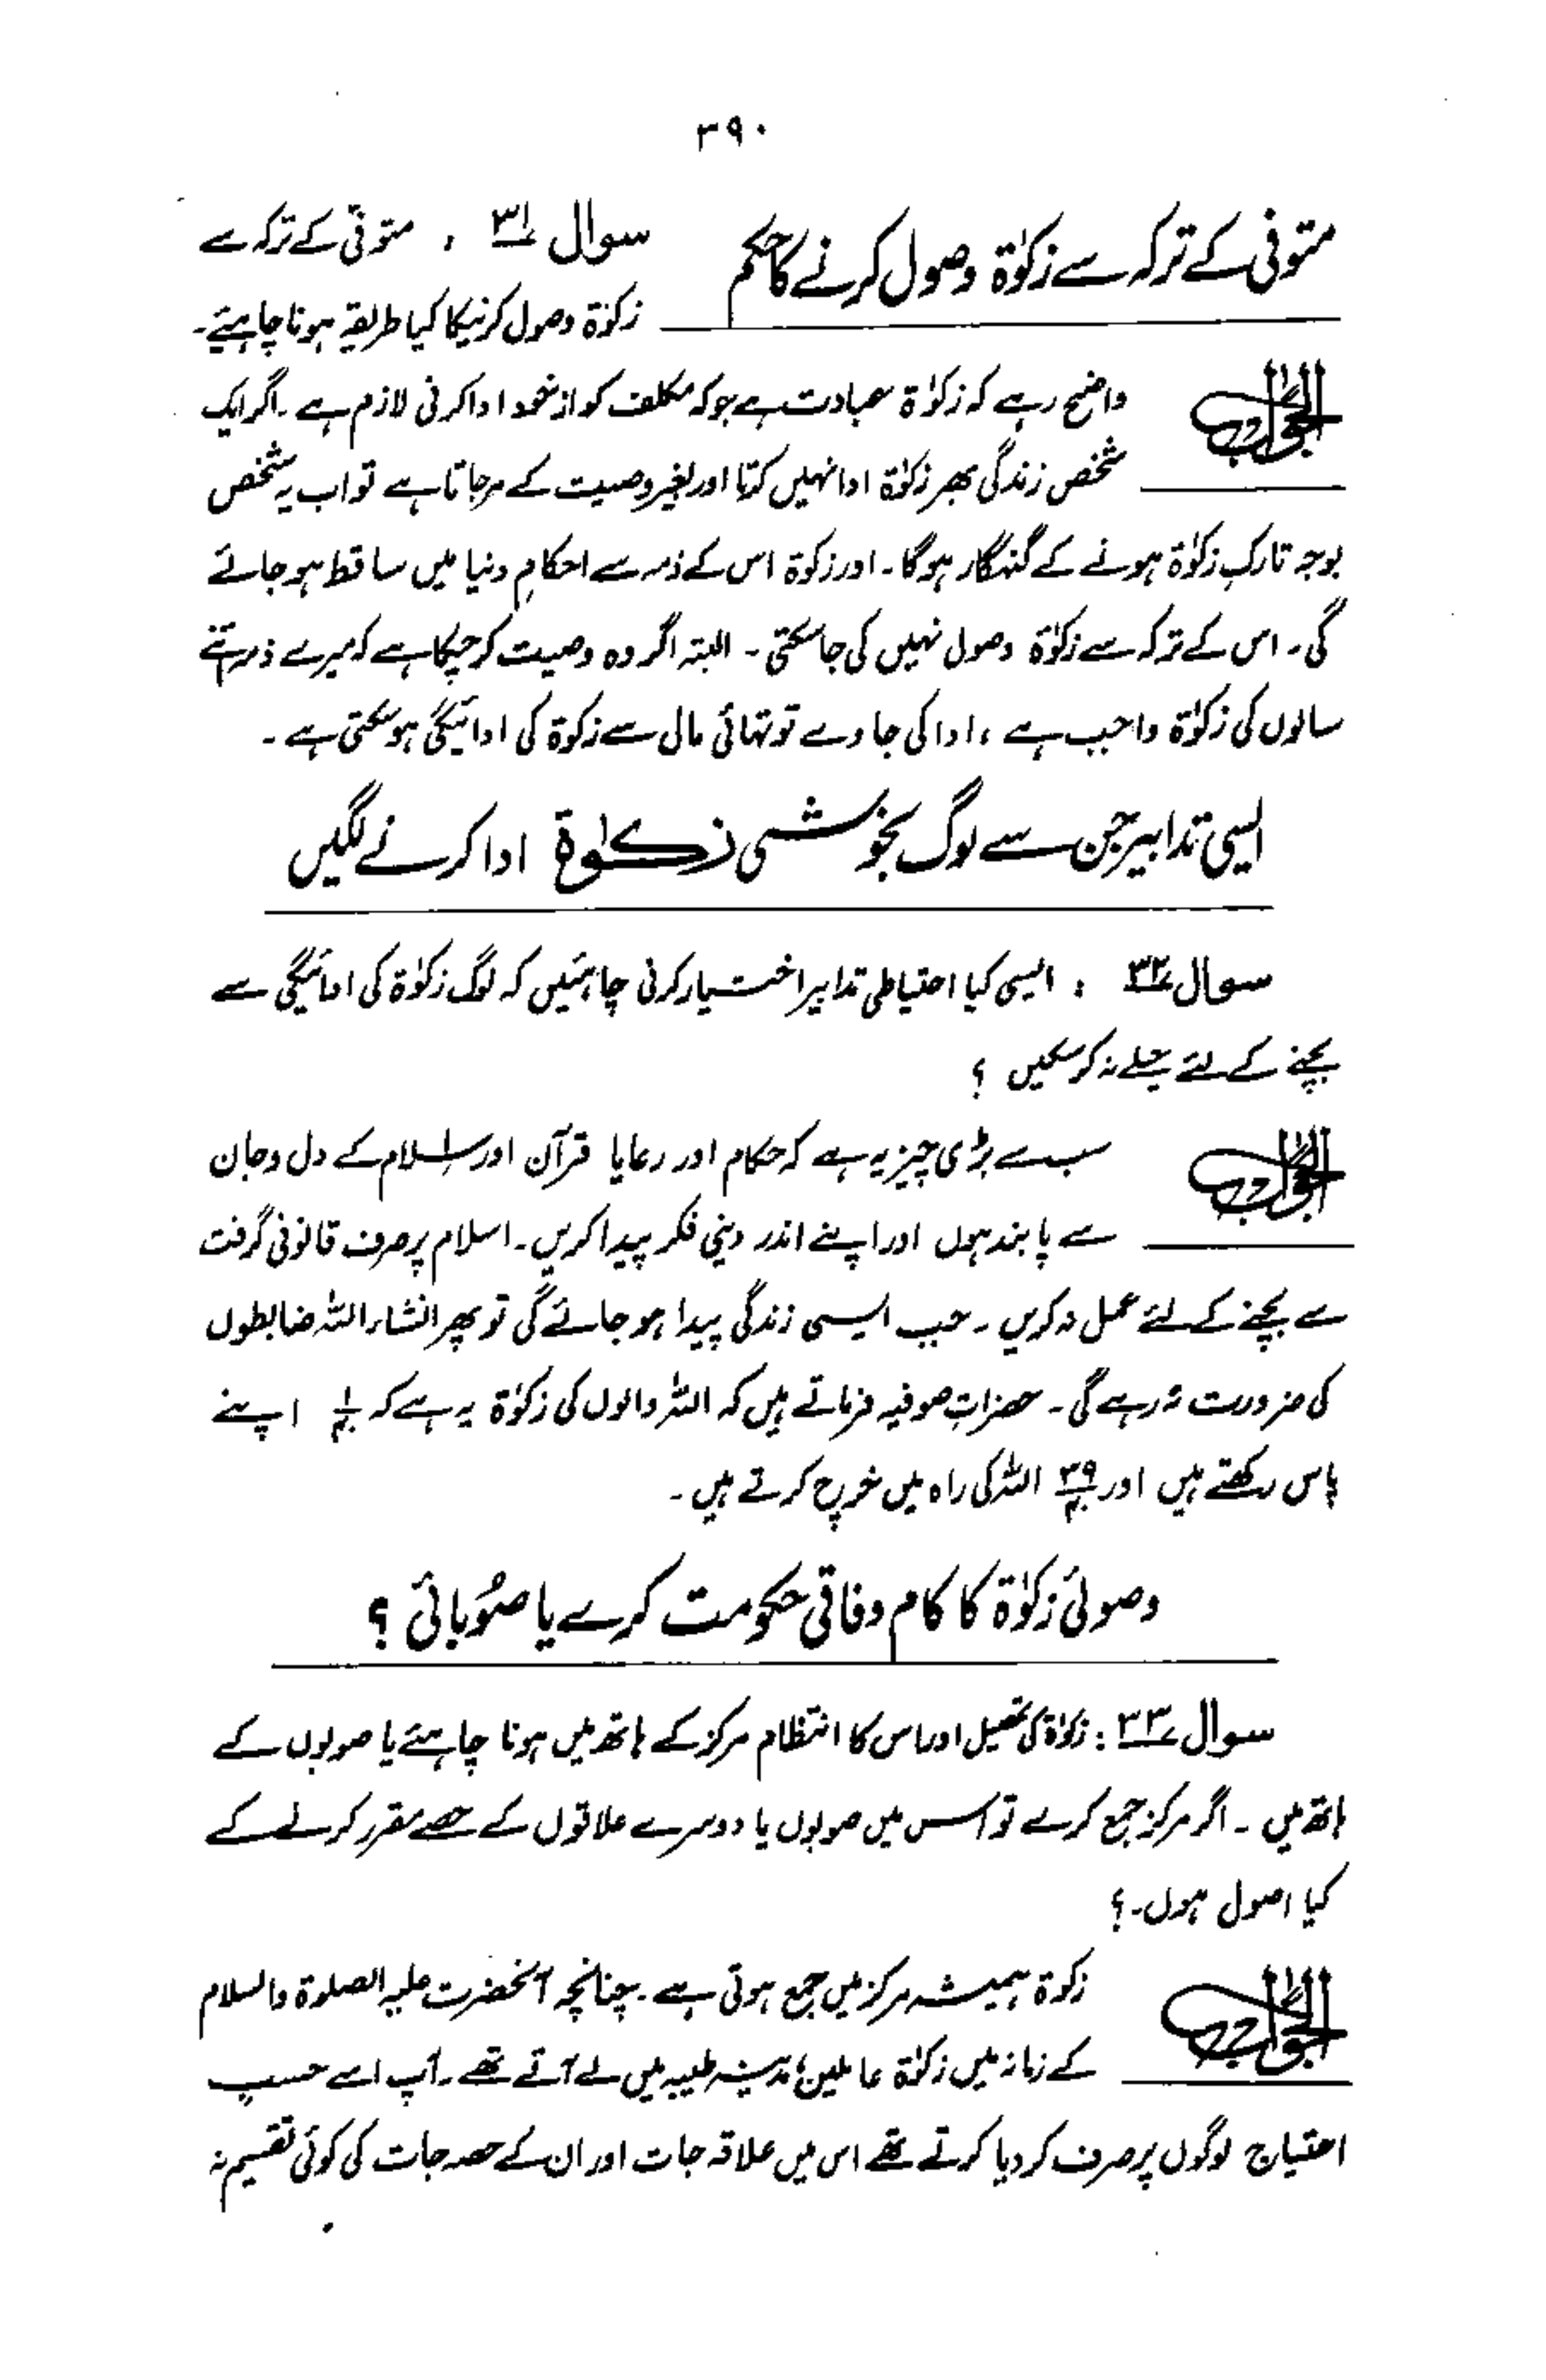 ۳۹۰
متوفی کے ترکہ سے زکوٰۃ وصول کرنے کا حکم
سوال ۳۱ : متوفی کے ترکہ سے
زکوٰۃ وصول کرنیکا کیا طریقہ ہونا چاہیئے۔
الجواب
واضح رہے کہ زکوٰۃ عبادت ہے جو کہ مکلف کو از خود ادا کرنی لازم ہے ۔ اگر ایک
شخص زندگی بھر زکوٰۃ ادا نہیں کرتا اور بغیر وصیت کے مر جاتا ہے تو اب یہ شخص
بوجہ تارکِ زکوٰۃ ہونے کے گنہگار ہو گا ۔ اور زکوٰۃ اس کے ذمہ سے احکامِ دنیا میں ساقط ہو جائے
گی ۔ اس کے ترکہ سے زکوٰۃ وصول نہیں کی جا سکتی ۔ البتہ اگر وہ وصیت کر چکا ہے کہ میرے ذمہ اتنے
سالوں کی زکوٰۃ واجب ہے ، ادا کی جاوے تو تہائی مال سے زکوٰۃ کی ادائیگی ہو سکتی ہے ۔
ایسی تدابیر جن سے لوگ بخوشی زکوٰۃ ادا کرنے لگیں
سوال ۳۲ : ایسی کیا احتیاطی تدابیر اختیار کرنی چاہئیں کہ لوگ زکوٰۃ کی ادائیگی سے
بچنے کے لئے حیلے نہ کر سکیں ؟
الجواب
سب سے بڑی چیز یہ ہے کہ حکام اور رعایا قرآن اور اسلام کے دل و جان
سے پابند ہوں اور اپنے اندر دینی فکر پیدا کریں ۔ اسلام پر صرف قانونی گرفت
سے بچنے کے لئے عمل نہ کریں ۔ جب ایسی زندگی پیدا ہو جائے گی تو پھر انشاء اللہ ضابطوں
کی ضرورت نہ رہے گی ۔ حضراتِ صوفیہ فرماتے ہیں کہ اللہ والوں کی زکوٰۃ یہ ہے کہ ۱/۴۰ اپنے
پاس رکھتے ہیں اور ۳۹/۴۰ اللہ کی راہ میں خرچ کرتے ہیں ۔
وصولئ زکوٰۃ کا کام وفاقی حکومت کرے یا صُوبائی ؟
سوال ۳۳ : زکوٰۃ کی تحصیل اور اس کا انتظام مرکز کے ہاتھ میں ہونا چاہئے یا صوبوں کے
ہاتھ میں ۔ اگر مرکز جمع کرے تو اس میں صوبوں یا دوسرے علاقوں کے حصے مقرر کرنے کے
کیا اصول ہوں ۔ ؟
الجواب
زکوٰۃ ہمیشہ مرکز میں جمع ہوتی ہے ۔ چنانچہ آنحضرت علیہ الصلوۃ والسلام
کے زمانہ میں زکوٰۃ عاملین مدینہ طیبہ میں لے آتے تھے ۔ آپ اسے حسبِ
احتیاج لوگوں پر صرف کر دیا کرتے تھے اس میں علاقہ جات اور ان کے حصہ جات کی کوئی تقسیم نہ